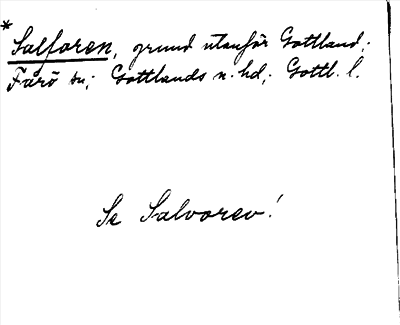 * Salforen, grund utanför Gottland;
Fårö sn; Gottlands n. hd; Gottl. l.
Se Salvorev!